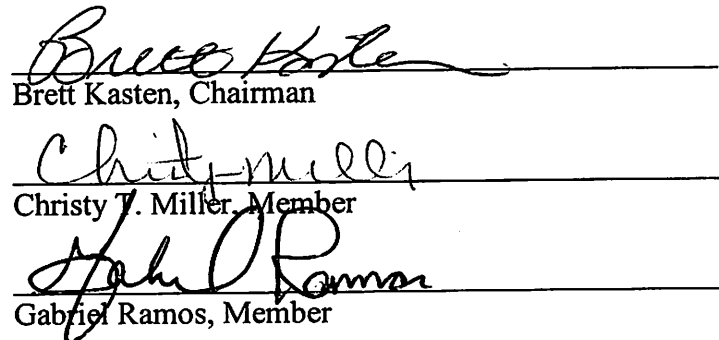 Brett Kasten
Brett Kasten, Chairman
Christy Miller
Christy T. Miller, Member
Gabriel Ramos
Gabriel Ramos, Member